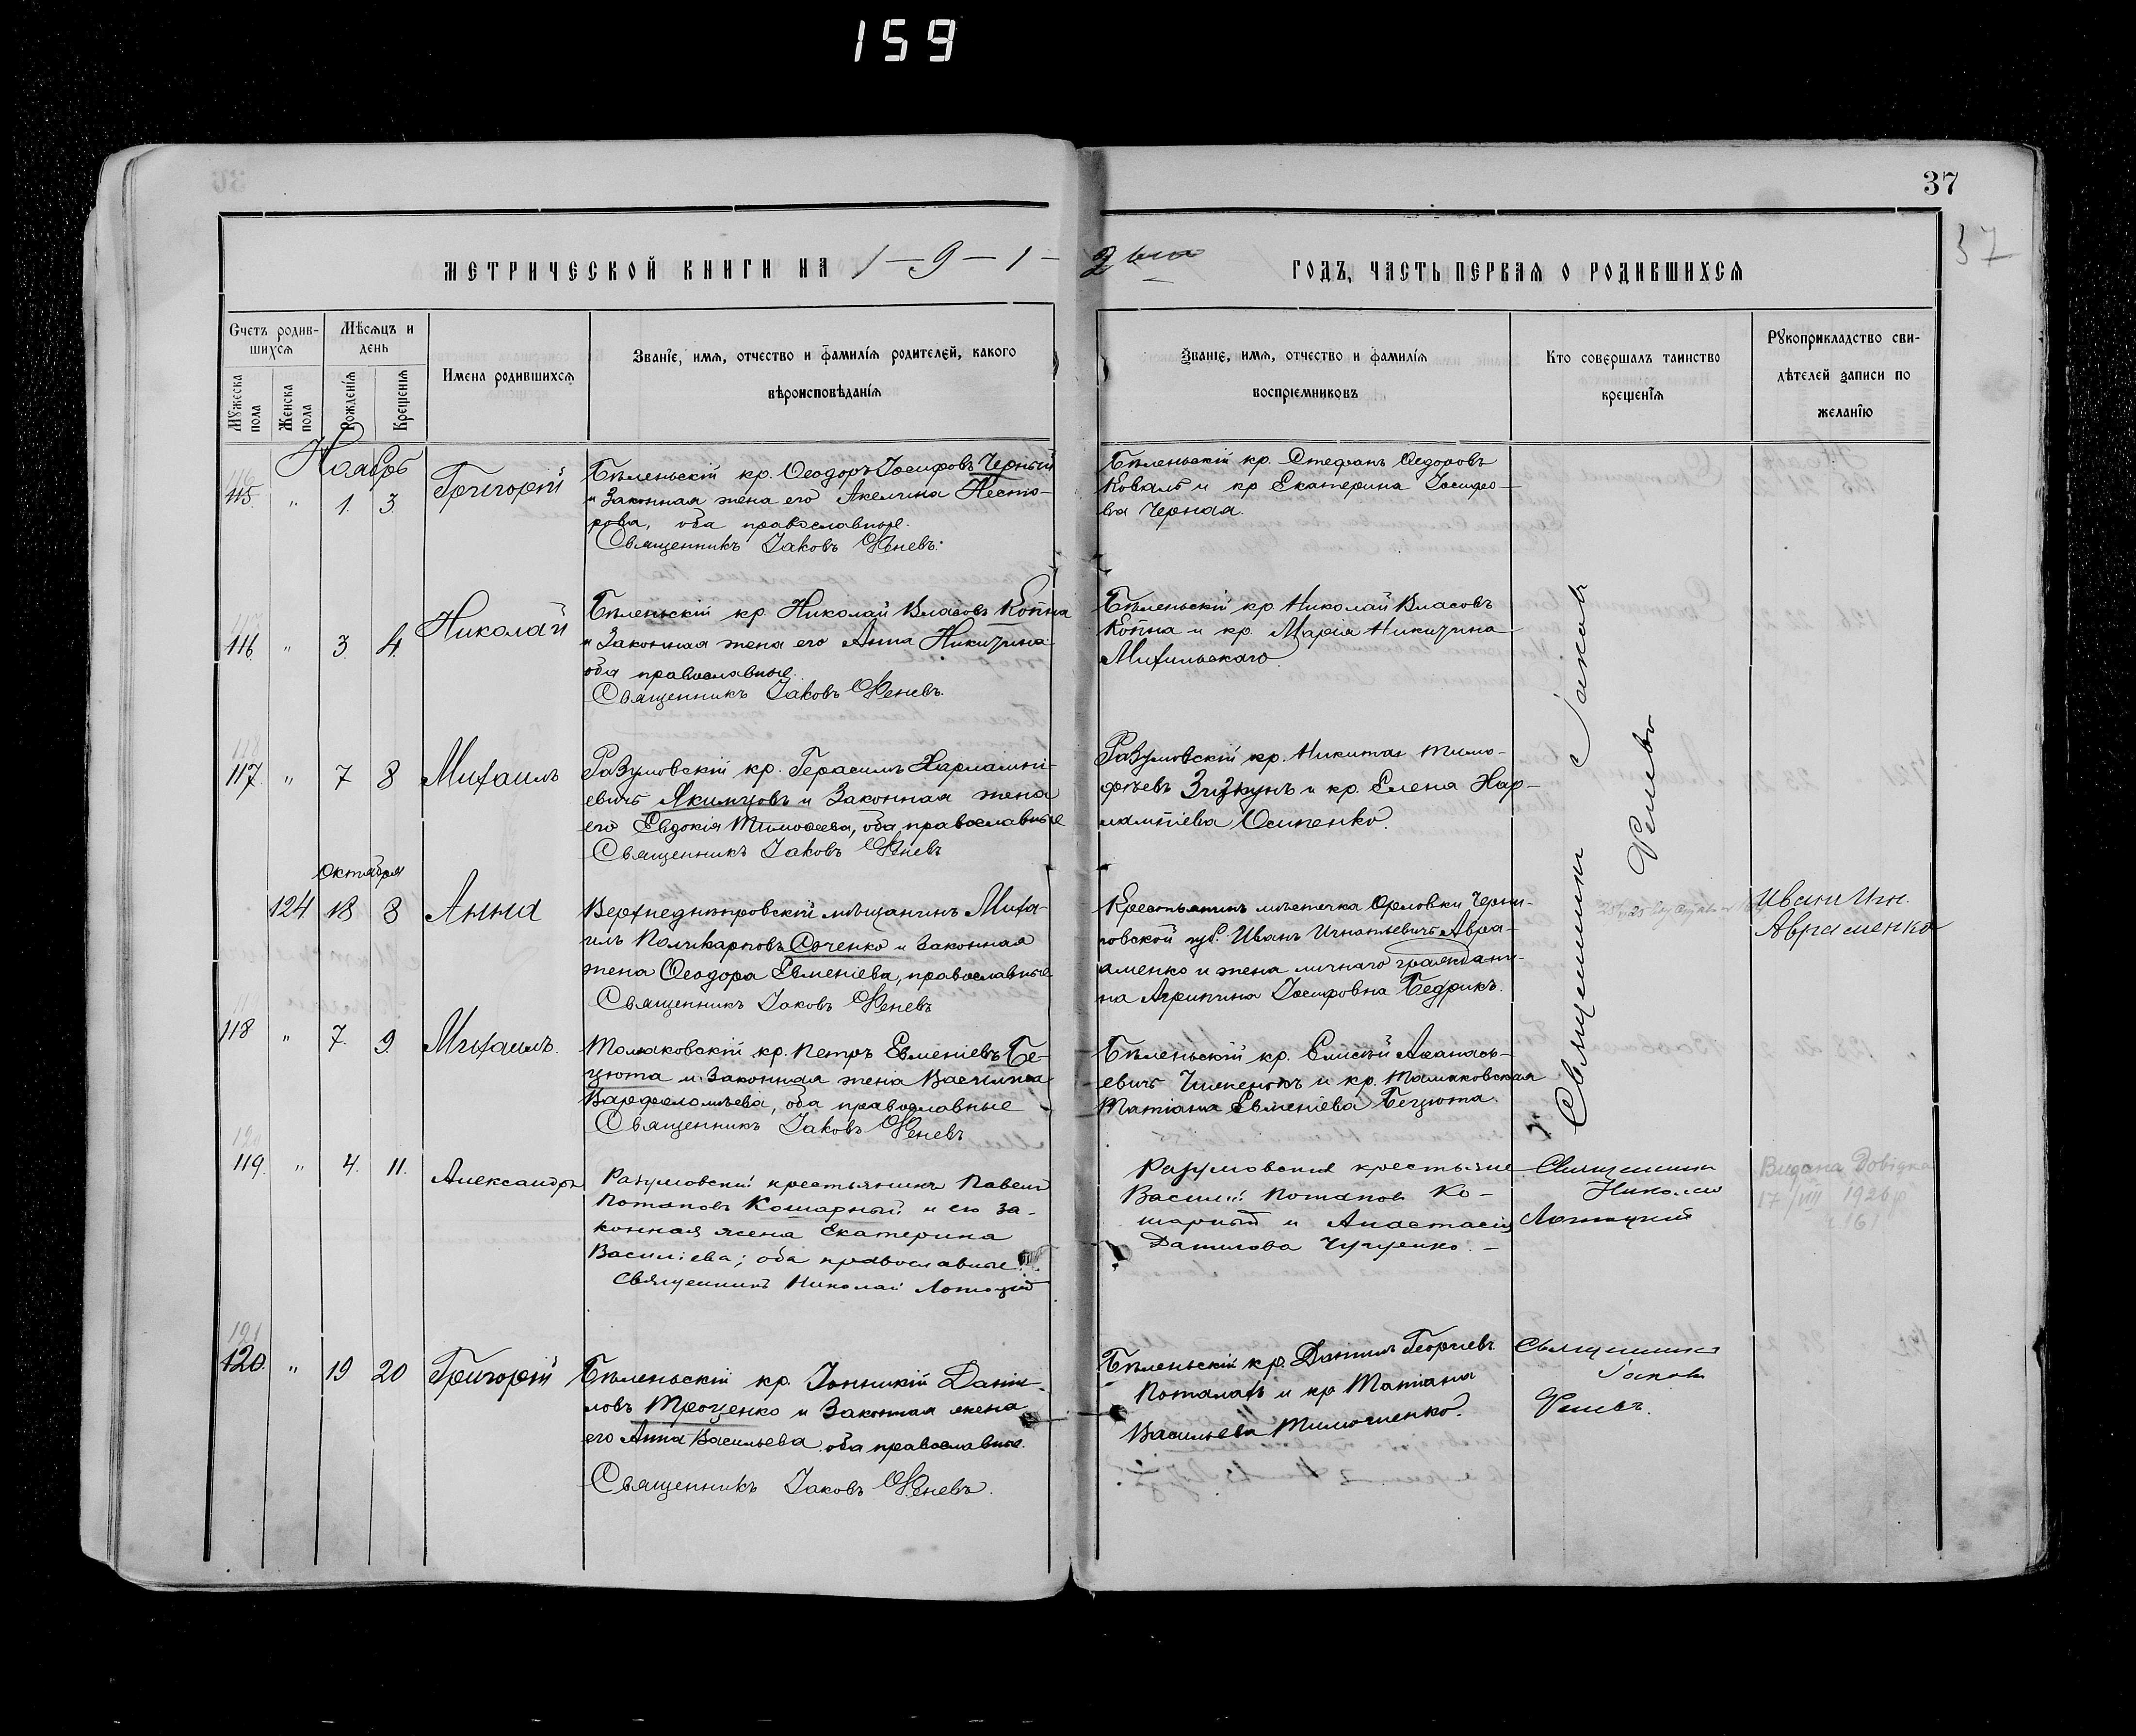 159
37
37
МЕТРИЧЕСКОЙ КНИГИ НА 1-9-1-2 ый ГОДЪ, ЧАСТЬ ПЕРВАЯ О РОДИВШИХСЯ
Счетъ родив-
шихся
Мѣсяцъ и
день
Мужеска
пола
Женска
пола
Рожденія
Крещенія
Имена родившихся
Званіе, имя, отчество и фамилія родителей, какого
вѣроисповѣданія
Званіе, имя, отчество и фамилія
воспріемниковъ
Кто совершалъ таинство
крещенія
Рукоприкладство сви-
дѣтелей записи по
желанію
Ноябрь
115. " 1. 3. Григорій
Бѣленьскій кр. Ѳеодоръ Іосифовъ Черный
и законная жена его Акелина Несто-
рова, оба православные.
Священникъ Іаковъ
Бѣленьскій кр. Стефанъ Ѳедоровъ
Коваль и кр Екатерина Іосифо-
ва Черная.
116. " 3. 4. Николай
Бѣленьскій кр. Николай Власовъ Копна
и законная жена его Анна Никитина
оба православные.
Священникъ Іаковъ
Бѣленьскій кр. Николай Власовъ
Копна и кр. Марія Никитина
117. " 7 8 Михаилъ
Разумовскій кр. Герасимъ Харлампі-
евичъ Якимцовъ и законная жена
его Евдокія Тимоѳеева, оба православные
Священникъ Іаковъ
Разумовскій кр. Никита Тимо-
фѣевъ и кр. Елена Хар-
лампіева Осипенко.
Октября
124 18 8 Анна
Верхнеднѣпровскій мѣщанинъ Миха-
илъ Поликарповъ Соченко и законная
жена Ѳеодора Евменіева, православные
Священникъ Іаковъ
Крестьянинъ мѣстечка Орловки Черни-
говской губ. Иванъ Игнатьевичъ Авра-
аменко и жена личнаго граждани-
на Агрипина Іосифовна Бедрикъ.
Иванъ Игн.
Авраменко
118 " 7. 9. Михаилъ.
Томаковскій кр. Петръ Евменіевъ Бе-
цюта и законная жена Василиса
Варфоломѣева, оба православные
Священникъ Іаковъ
Бѣленьскій кр. Елисѣй Аѳанась-
евичъ и кр. Томаковская
Татіана Евменіева Бецюта.
Священникъ Іаковъ
119. " 4. 11. Александръ
Разумовскій крестьянинъ Павелъ
Потаповъ Кошарный и его за-
конная жена Екатерина
Василіева; оба православные.
Священникъ Николай Лотоцкій
Разумовскіе крестьяне
Василій Потаповъ Ко-
шарный и Анастасія
Данилова
Священникъ
Николай
Лотоцкій
Видана Довідка
17/VIII 1926 р
ч. 161
121
120. " 19 20 Григорій
Бѣленьскій кр. Іоникій Дани-
ловъ Троценко и законная жена
его Анна Васильева оба православные.
Священникъ Іаковъ
Бѣленьскій кр. Даніилъ Георгіевъ
и кр Татіана
Васильева Тимошенко.
Священникъ
Іаковъ